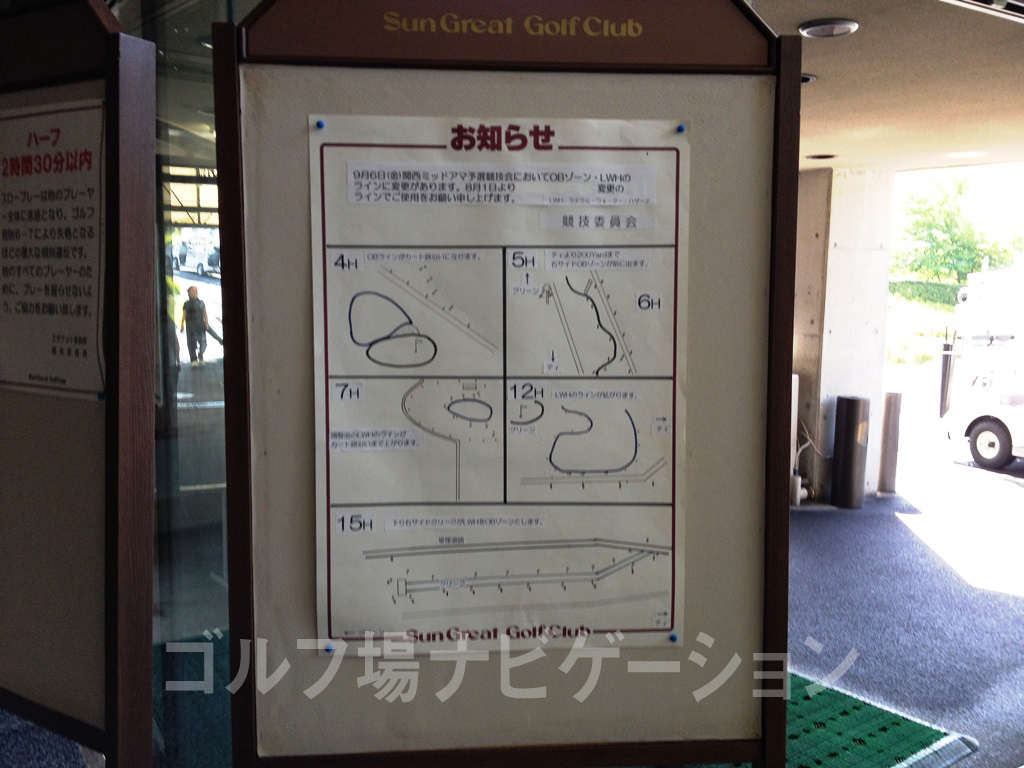 Sun Great Golf Club
お知らせ
9月6日(金)関西ミッドアマ予選競技会においてOBゾーン・LWHの
ラインに変更があります。8月1日より 変更の
ラインでご使用をお願い申し上げます。
LWH:ラテラル・ウォーター・ハザード
競技委員会
4H
OBラインがカート道沿いになります。
5H
ティより200Yardまで
右サイドOBゾーンが前に出ます。
グリーン
6H
ティ
7H
LWHのラインが
カート道沿いまで上がります。
12H
LWHのラインが拡がります。
グリーン
ティ
15H
管理道路
クリーク
ティ
Sun Great Golf Club
ハーフ
2時間30分以内
スロープレーは他のプレーヤ
ー全体に迷惑となり、ゴルフ
規則6-7により失格となる
ほどの重大な規則違反です。
他のすべてのプレーヤーのた
めに、プレーを遅らせないよ
う、ご協力をお願い致します。
エチケット委員会
競技委員会
Sun Great Golf Club
ゴルフ場ナビゲーション